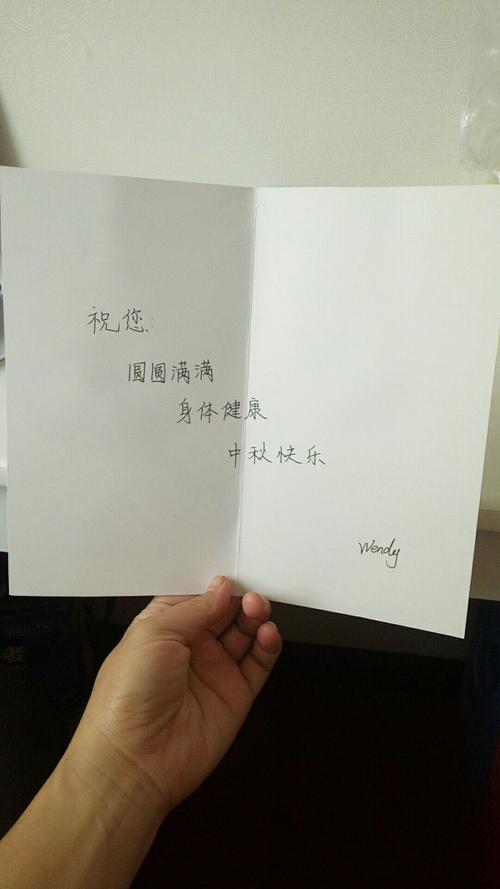 祝您:
圆圆满满
身体健康
中秋快乐
Wendy